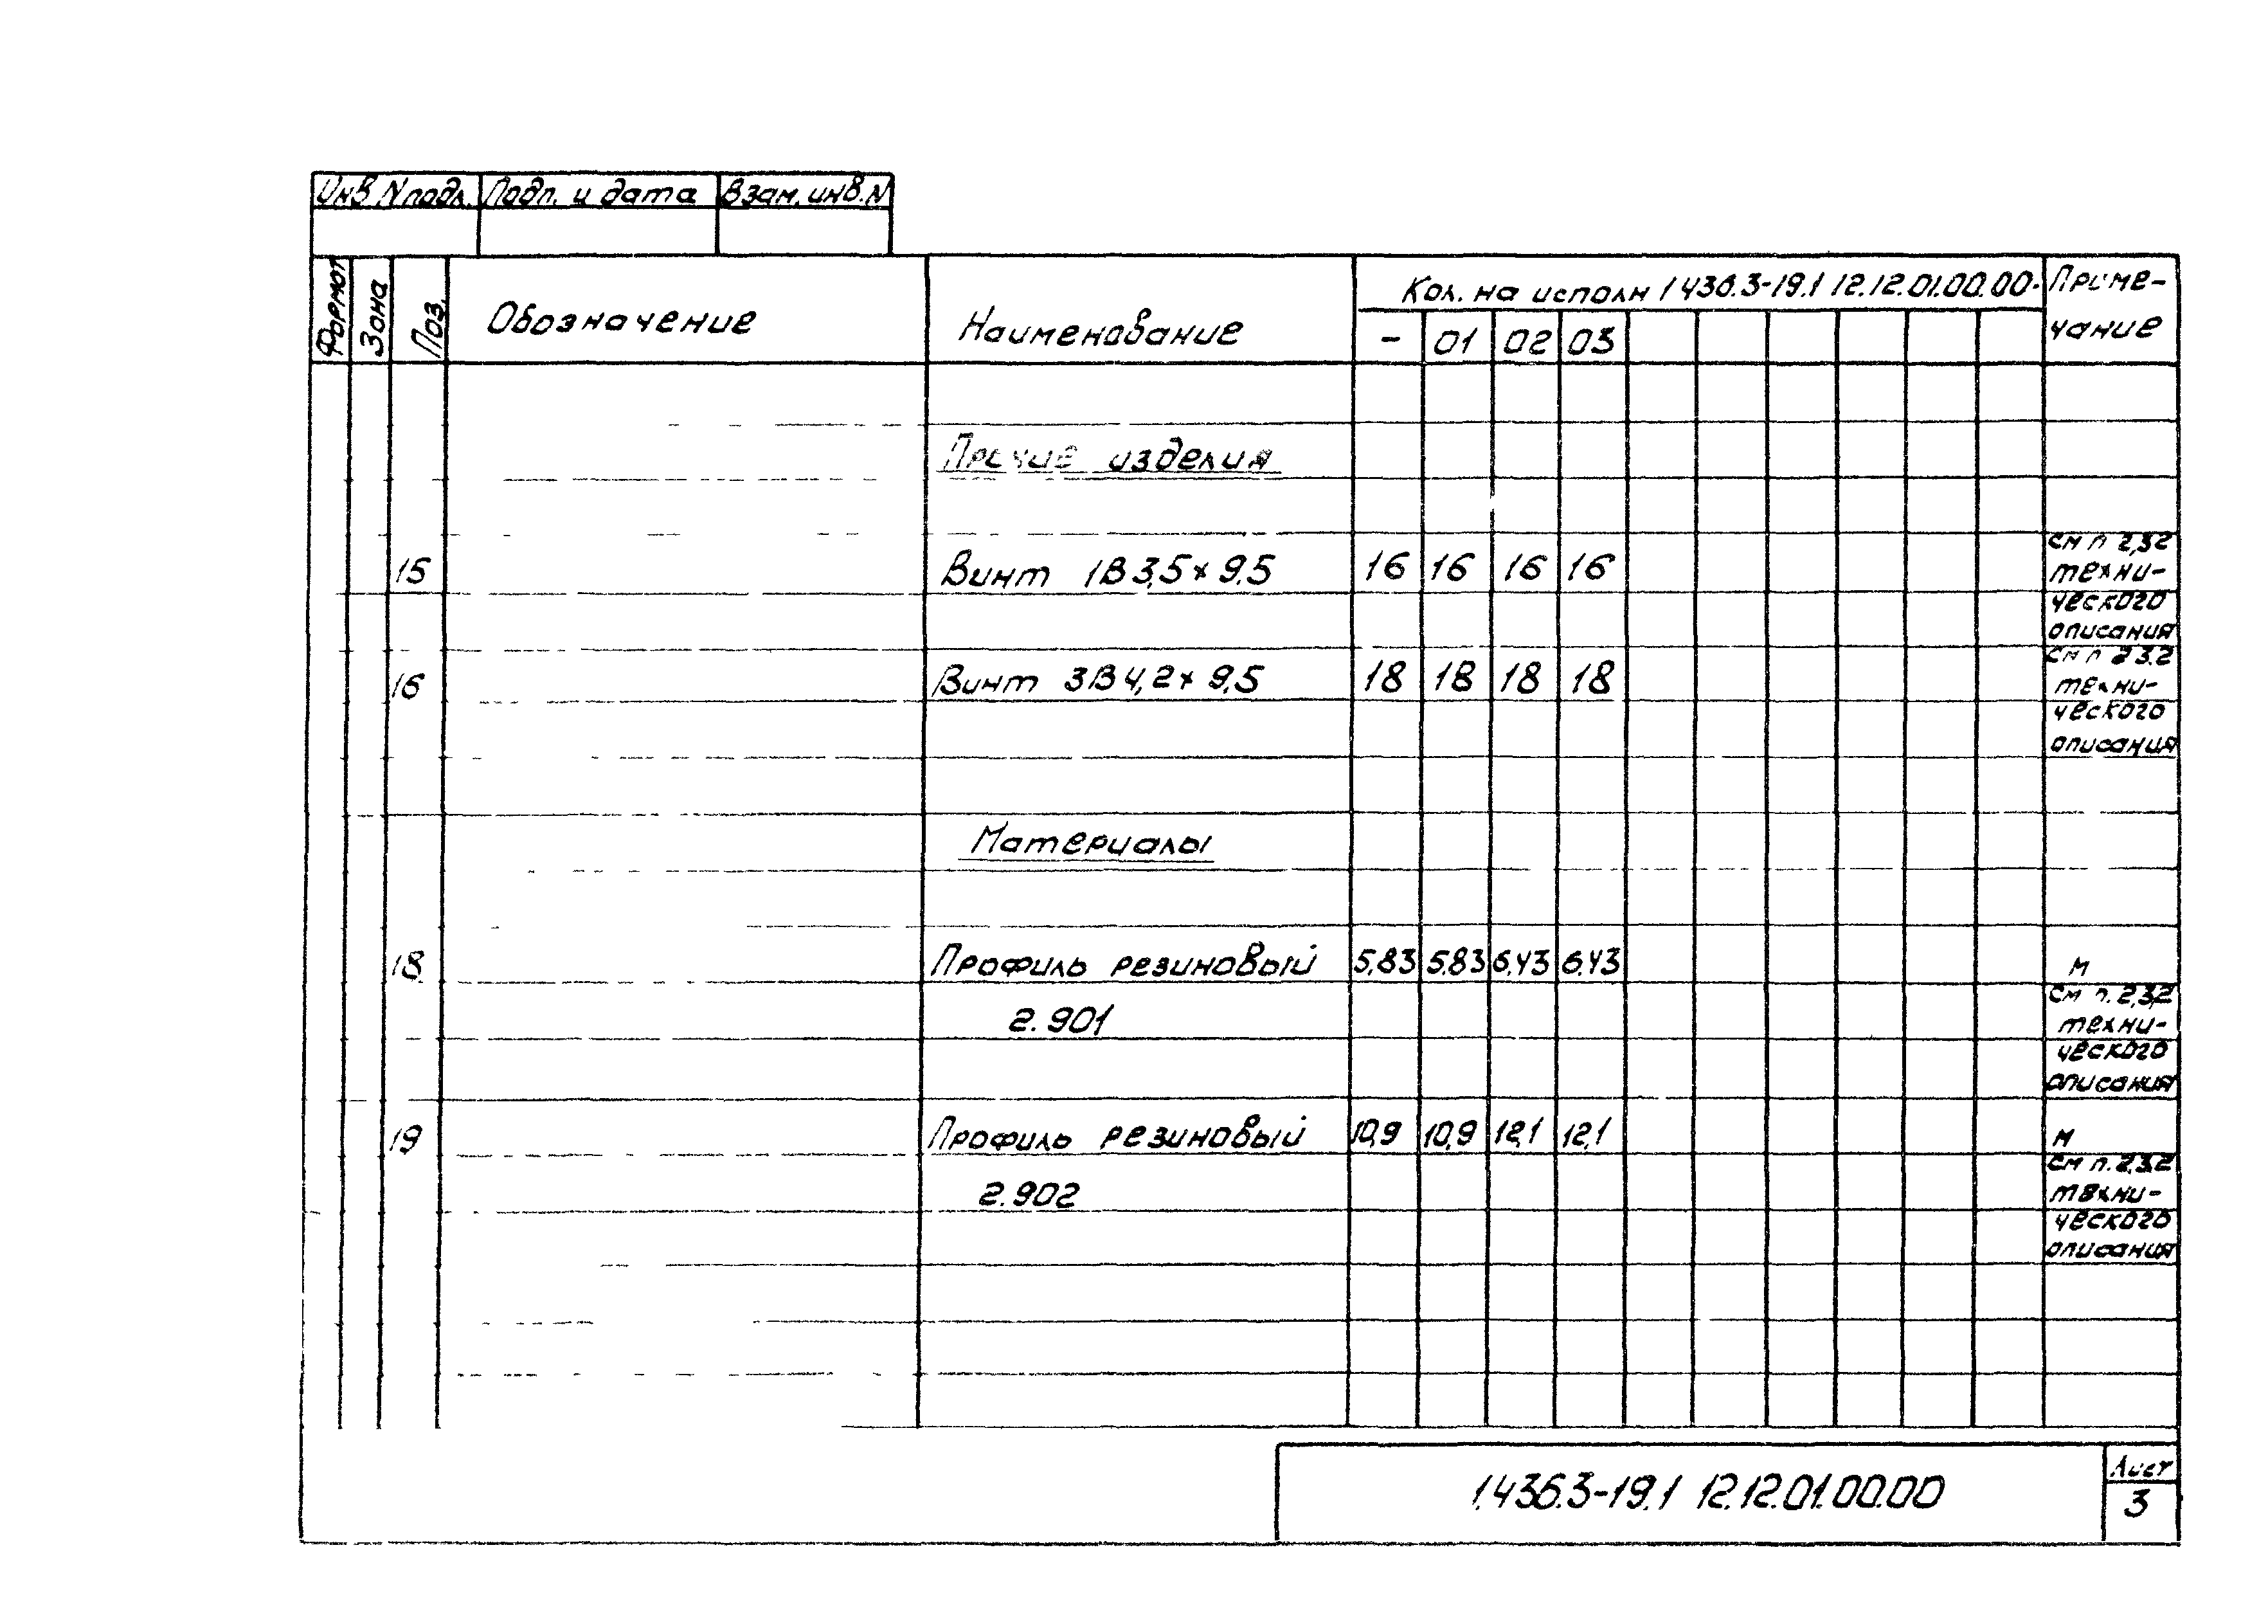 Инв N подл. Подп. и дата Взам. инв. N
Формат Зона Поз. Обозначение Наименование Кол. на исполн 1 436.3-19.1 12.12.01.00.00- Приме-
чание
- 01 02 03
Прочие изделия
15 Винт 1В 3,5×9,5 16 16 16 16 см п 2,3.2
техни-
ческого
описания
16 Винт 3В 4,2×9,5 18 18 18 18 см п 2 3.2
техни-
ческого
описания
Материалы
18 Профиль резиновый 5,83 5,83 6,43 6.43 м
2.901 см п. 2,3,2
техни-
ческого
описания
19 Профиль резиновый 10,9 10,9 12,1 12,1 м
2.902 см п. 2.3.2
техни-
ческого
описания
1.436.3-19.1 12.12.01.00.00 Лист
3